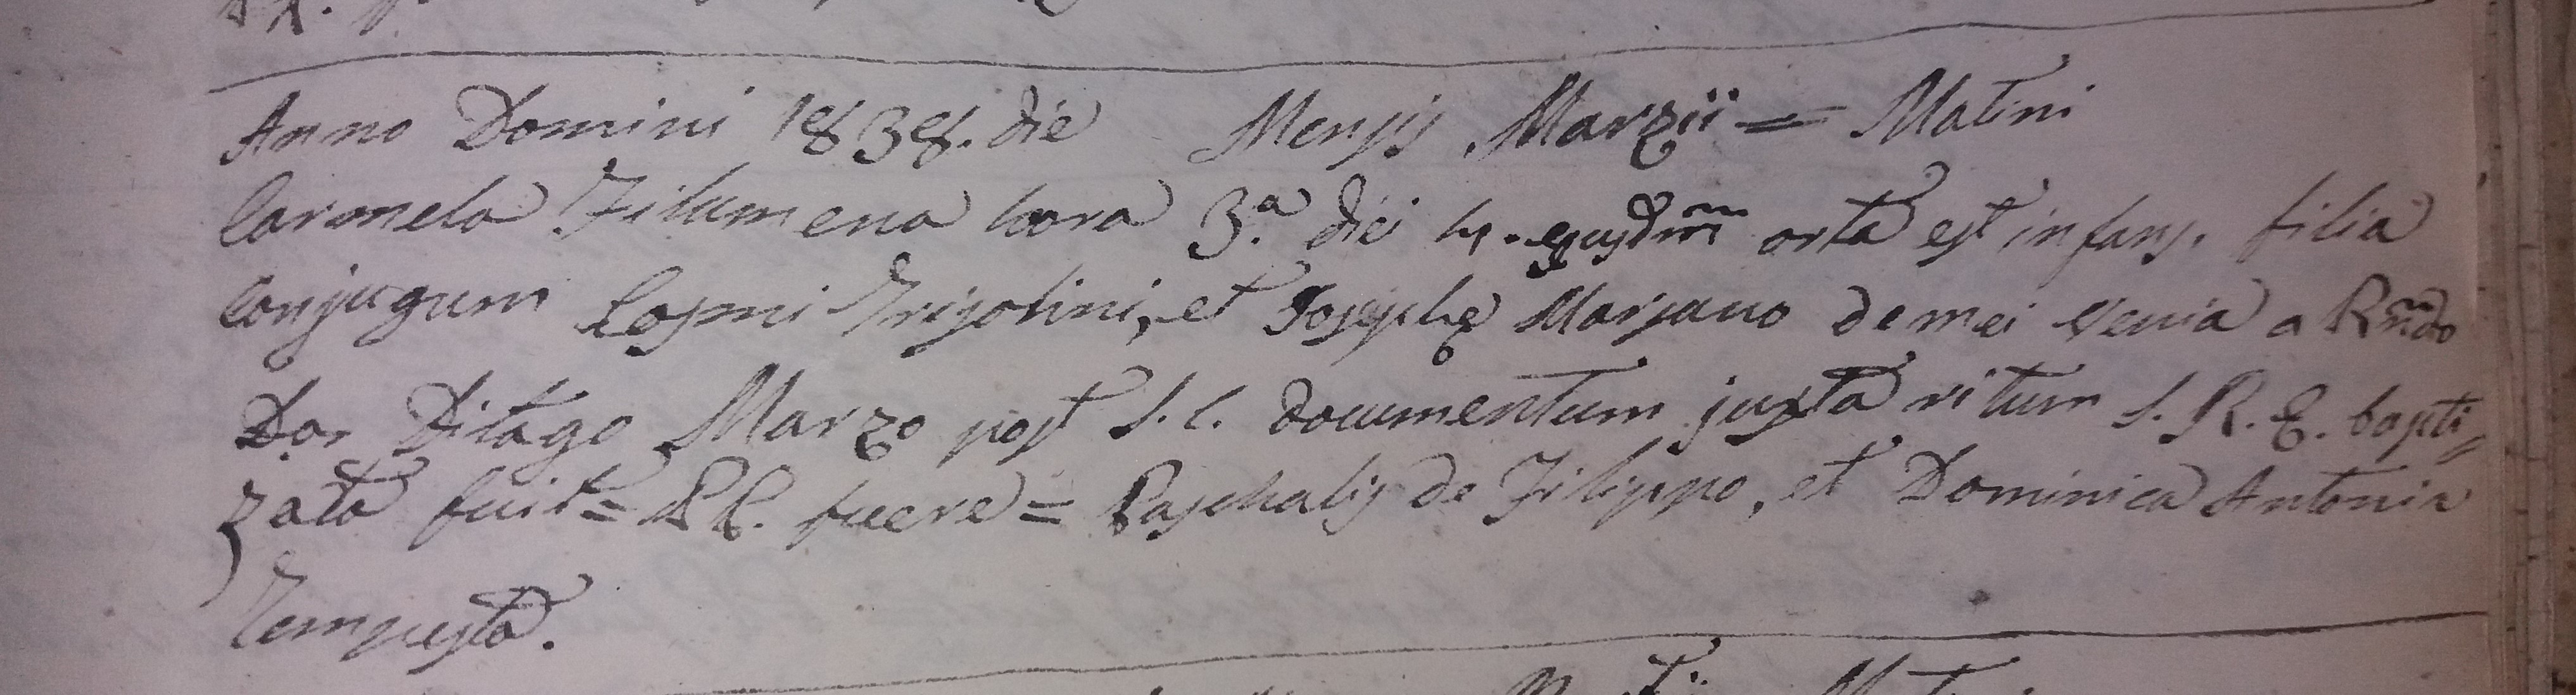 Anno Domini 1838. die Mensis Marzii = Matini
Carmela Filumena hora 3.a diei 4. ejusdm orta est infans, filia
Conjugum Cosmi Frisolini, et Josephę Marsano de mei venia a Rndo
Don Ditago Marzo post S. C. documentum juxta ritum S. R. E. bapti=
zata fuit = PP. fuere = Paschalis de Filippo, et Dominica Antonia
Tempesta.